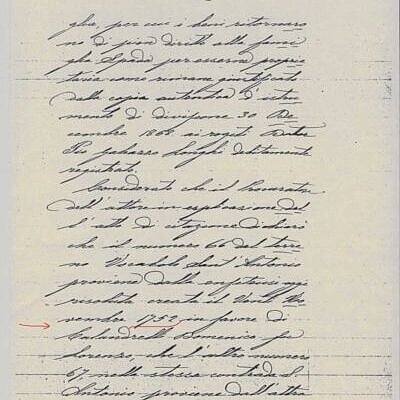 glia, per cui i beni ritornaro
no di pien diritto alla fami
glia Spada per esserne proprie
taria come rimane giustificato
dalla copia autentica d'istru
mento di divisione 30 De
cembre 1868 ai rogiti Dottor
Pio Longhi debitamente
registrato.
Considerato che il Procuratore
dell'attore in esplicazione del
l'atto di citazione dichiarò
che il numero 66 del terre
no Vocabolo Sant'Antonio
proviene dalla enfiteusi oggi
risoluta creata il Venti No
vembre 1752 in favore di
Calandrelli Domenico fu
Lorenzo, che l'altro numero
67, nella stessa contrada S.
Antonio proviene dall'altra